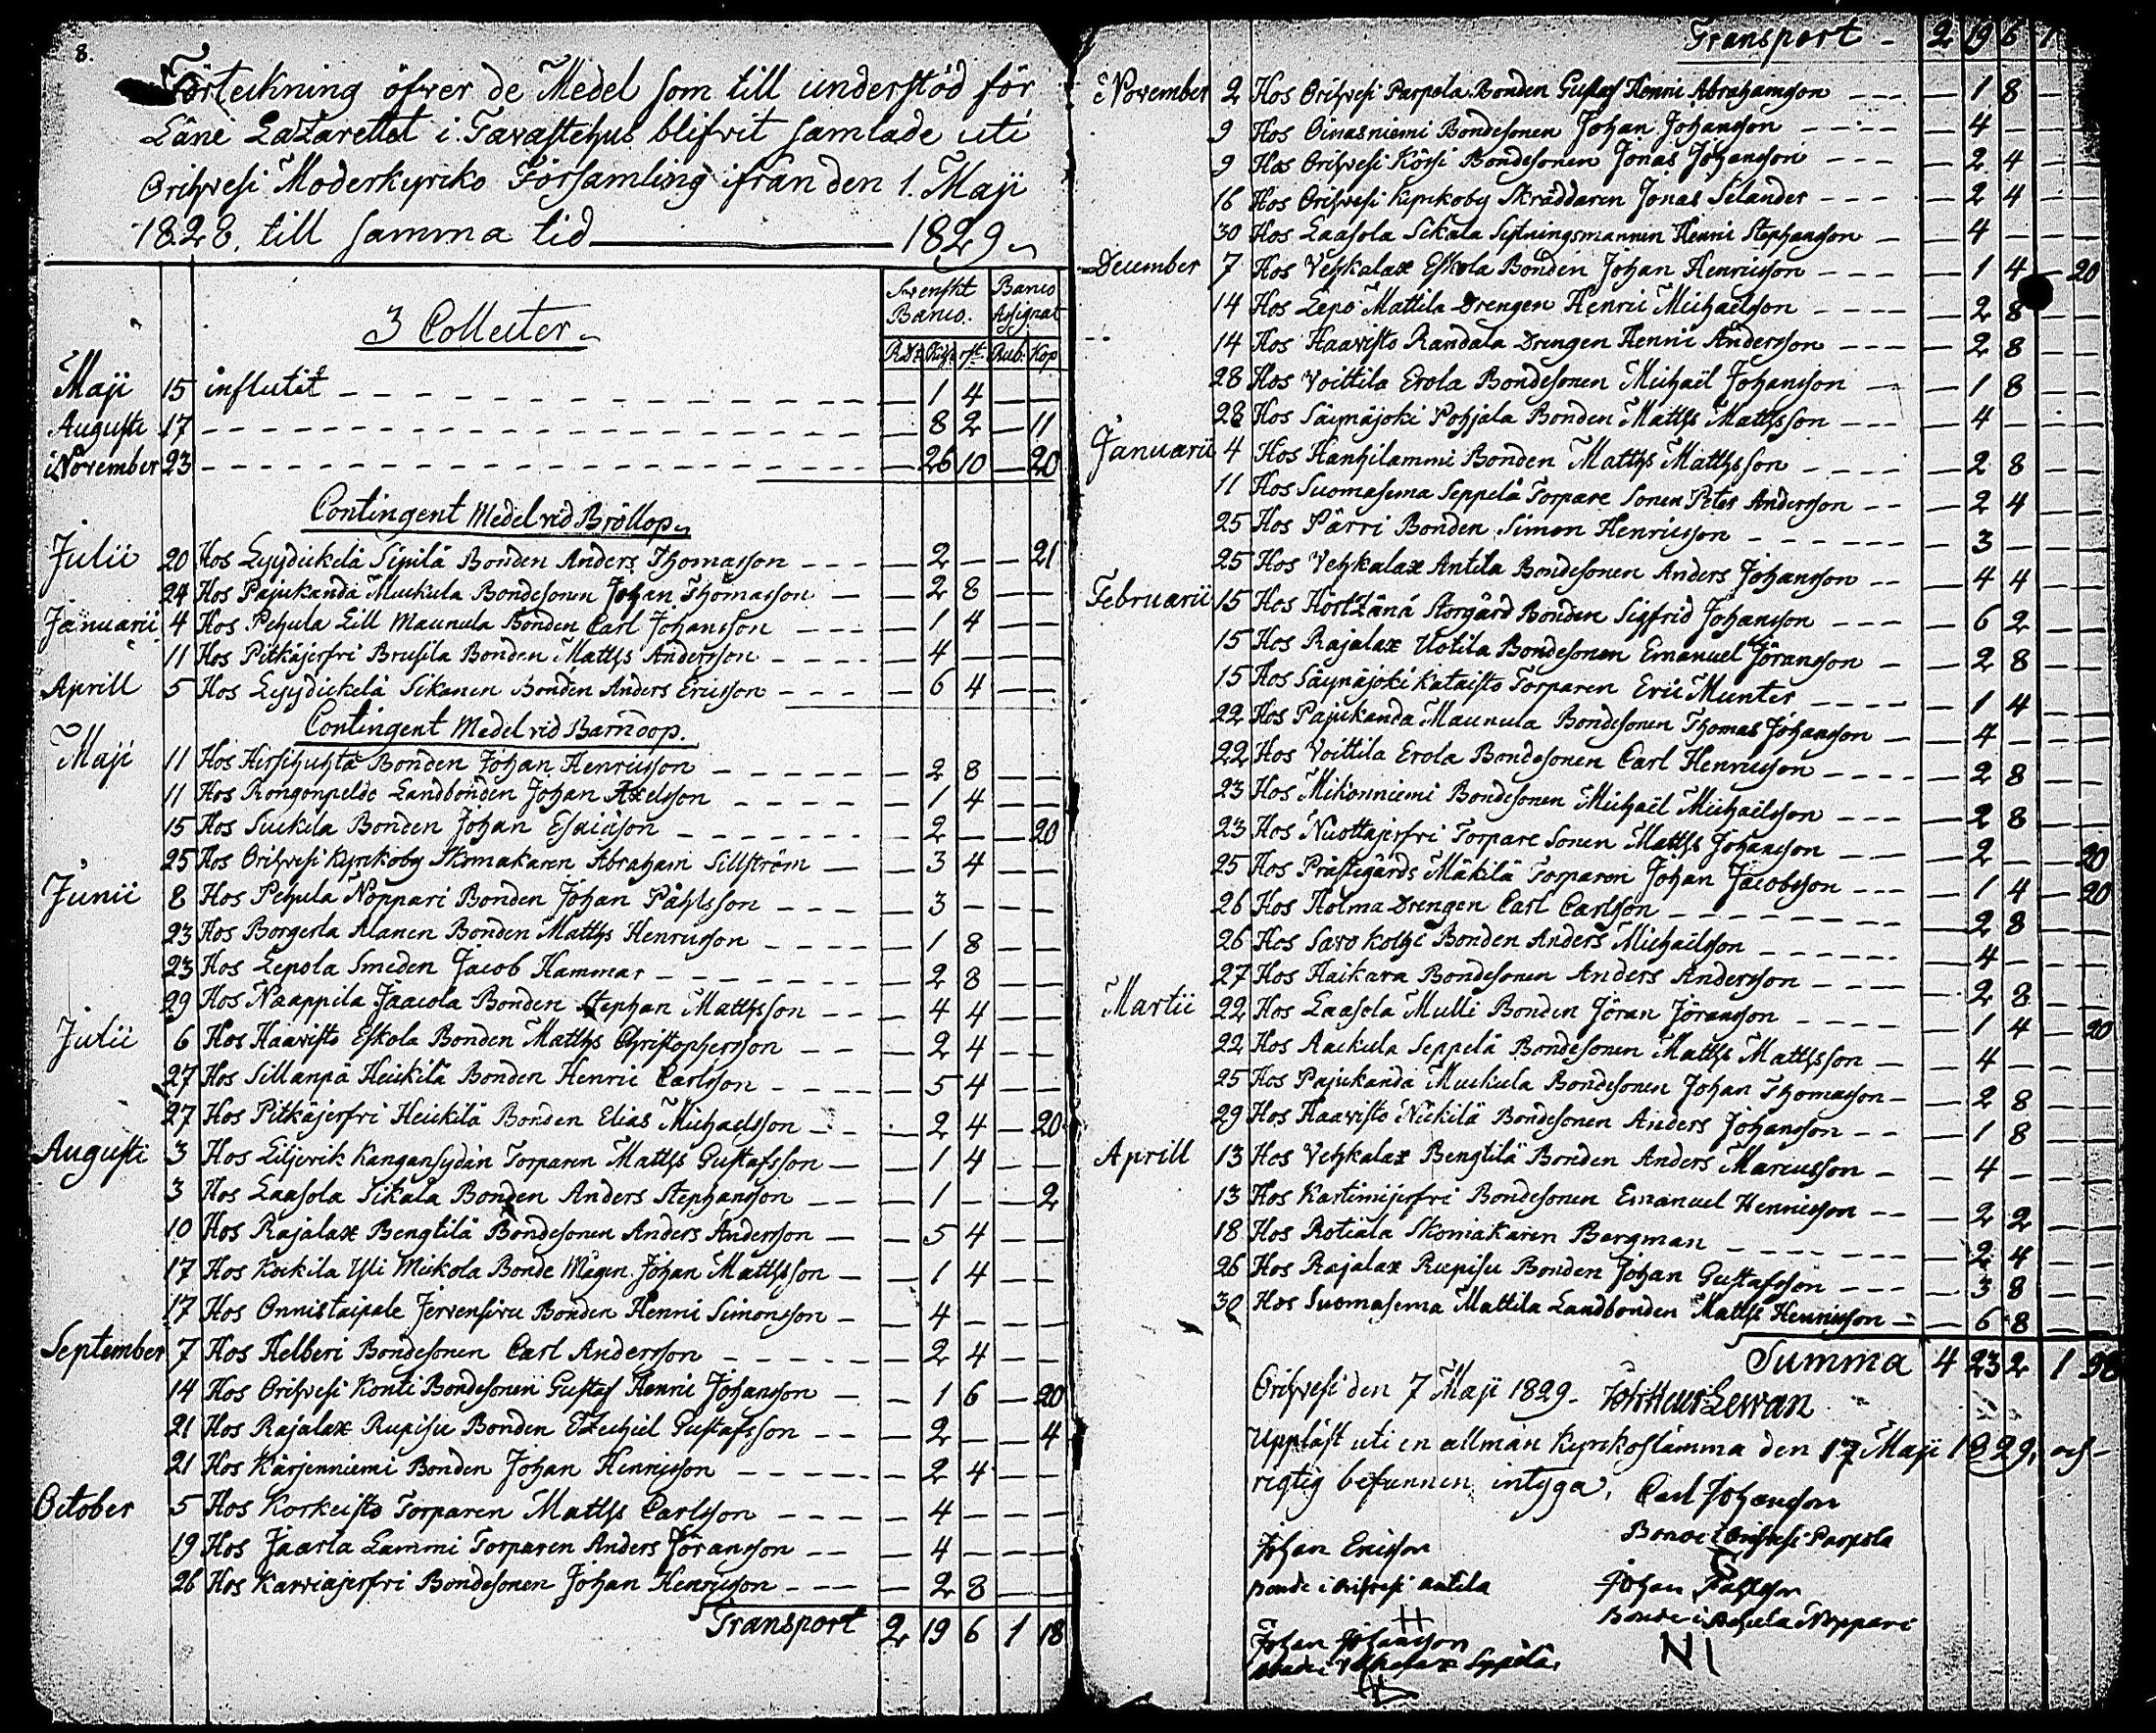 8.
Förteckning öfver de Medel som till understöd för
Läne Lazarettet i Tavastehus blifvit samlade uti
Orihvesi Moderkyrko Församling ifrån den 1. Maji
1828. till samma tid 1829
Svenskt Banco. Banco Assignat
3 Collecter
RDr Skill. rst. Rub. Kop
Maji 15 influtit — 1 4 — —
Augusti 17 — 8 2 — 11
November 23 — 26 10 — 20
Contingent Medel vid Bröllop
Julii 20 Hos Lyydickelä Sipilä Bonden Anders Thomasson — 2 — — 21
24 Hos Pajukanda Muckula Bondesonen Johan Thomasson — 2 8 — —
Januarii 4 Hos Pehula Lill Maunula Bonden Carl Johansson — 1 4 — —
11 Hos Pitkäjerfvi Brusila Bonden Matths Andersson — 4 — — —
Aprill 5 Hos Lyydickelä Sikanen Bonden Anders Ericsson — 6 4 — —
Contingent Medel vid Barndop.
Maji 11 Hos Hirsihuhta Bonden Johan Henricsson — 2 8 — —
11 Hos Rongonpeldo Landbonden Johan Axelsson — 1 4 — —
15 Hos Suckila Bonden Johan Esaiæson — 2 — — 20
25 Hos Orihvesi Kyrkoby Skomakaren Abraham Sillström — 3 4 — —
Junii 8 Hos Pehula Noppari Bonden Johan Påhlsson — 3 — — —
23 Hos Borgerla Alanen Bonden Matths Henricsson — 1 8 — —
23 Hos Lepola Smeden Jacob Hammar — 2 8 — —
29 Hos Naappila Jaacola Bonden Stephan Matthsson — 4 4 — —
Julii 6 Hos Haavisto Eskola Bonden Matths Christophersson — 2 4 — —
27 Hos Sillanpä Heickilä Bonden Henric Carlsson — 5 4 — —
27 Hos Pitkäjerfvi Heickilä Bonden Elias Michaelsson — 2 4 — 20
Augusti 3 Hos Liljerik Kangansydän Torparen Matths Gustafsson — 1 4 — —
3 Hos Laasola Sikala Bonden Anders Stephansson — 1 — — 2
10 Hos Rajalax Bengtilä Bondesonen Anders Andersson — 5 4 — —
17 Hos Kockila Yli Mickola Bonde Mågen Johan Matthsson — 1 4 — —
17 Hos Onnistaipale Jervensivu Bonden Henric Simonsson — 4 — — —
September 7 Hos Helberi Bondesonen Carl Andersson — 2 4 — —
14 Hos Orihvesi Konti Bondesonen Gustaf Henric Johansson — 1 6 — 20
21 Hos Rajalax Rupisu Bonden Ezechiel Gustafsson — 2 — — 4
21 Hos Kärjenniemi Bonden Johan Henricsson — 2 4 — —
October 5 Hos Korkeisto Torparen Matths Carlsson — 4 — — —
19 Hos Jaarla Lammi Torparen Anders Göransson — 4 — — —
26 Hos Karviajerfvi Bondesonen Johan Henricsson — 2 8 — —
Transport 2 19 6 1 18
Transport 2 19 6 1
November 2 Hos Orihvesi Parpola Bonden Gustaf Henric Abrahamsson — 1 8 —
9 Hos Oinasniemi Bondesonen Johan Johansson — 4 — —
9 Hos Orihvesi Körsi Bondesonen Jonas Johansson — 2 4 —
16 Hos Orihvesi Kyrkoby Skräddaren Jonas Selander — 2 4 — —
30 Hos Laasola Sikala Sytningsmannen Henric Stephansson — 4 — — —
December 7 Hos Vehkalax Eskola Bonden Johan Henricsson — 1 4 — 20
14 Hos Lepo Mattila Drengen Henric Michaelsson — 2 8 — —
14 Hos Haavisto Randala Drengen Henric Andersson — 2 8 — —
28 Hos Voittila Erola Bondesonen Michaël Johansson — 1 8 — —
28 Hos Säynäjoki Pohjala Bonden Matths Matthsson — 4 — — —
Januarii 4 Hos Hanhilammi Bonden Matths Matthsson — 2 8 — —
11 Hos Suomasema Seppelä Torpare Sonen Peter Andersson — 2 4 — —
25 Hos Pärri Bonden Simon Henricsson — 3 — — —
25 Hos Vehkalax Antila Bondesonen Anders Johansson — 4 4 — —
Februarii 15 Hos Hörtzänä Storgård Bonden Sigfrid Johansson — 6 2 — —
15 Hos Rajalax Uotila Bondesonen Emanuel Göransson — 2 8 — —
15 Hos Säynäjoki Kataisto Torparen Eric Munter — 1 4 — —
22 Hos Pajukanda Maunula Bondesonen Thomas Johansson — 4 — — —
22 Hos Voittila Erola Bondesonen Carl Henricsson — 2 8 — —
23 Hos Mikonniemi Bondesonen Michaël Michaëlsson — 2 8 — —
23 Hos Nuottajerfvi Torpare Sonen Matths Johansson — 2 — — 20
25 Hos Prästegårds Mäkilä Torparen Johan Jacobsson — 1 4 — 20
26 Hos Holma Drengen Carl Carlsson — 2 8 — —
26 Hos Savo Kolhi Bonden Anders Michaëlsson — 4 — — —
27 Hos Haikara Bondesonen Anders Andersson — 2 8 — —
Martii 22 Hos Laasola Mulli Bonden Göran Göransson — 1 4 — 20
22 Hos Aackula Seppelä Bondesonen Matths Matthsson — 4 — — —
25 Hos Pajukanda Muckula Bondesonen Johan Thomasson — 2 8 — —
29 Hos Haavisto Nickilä Bondesonen Anders Johansson — 1 8 — —
Aprill 13 Hos Vehkalax Bengtilä Bonden Anders Marcusson — 4 — — —
13 Hos Kartimijerfvi Bondesonen Emanuel Henricsson — 2 2 — —
18 Hos Rotiala Skomakaren Bergman — 2 4 — —
26 Hos Rajalax Rupisu Bonden Johan Gustafsson — 3 8 — —
30 Hos Suomasema Mattila Landbonden Matths Henricsson — 6 8 — —
Summa 4 23 2 1 98
Orihvesi den 7 Maji 1829. Joh Henr Lewan
Uppläst uti en allmän Kyrkostämma den 17 Maji 1829, och
rigtig befunnen, intyga,
Carl Johansson
Bonde i Orihvesi Parpola
Johan Ericsson
Bonde i Orihvesi Antila
Johan Påhlsson
Bonde i Pehula Noppari
Johan Johansson
Bonde i Vehkalax Seppälä